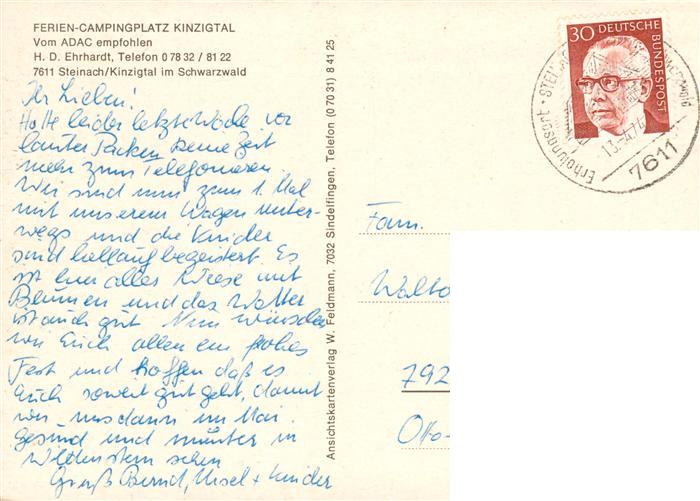 FERIEN-CAMPINGPLATZ KINZIGTAL
Vom ADAC empfohlen
H. D. Ehrhardt, Telefon 0 78 32 / 81 22
7611 Steinach/Kinzigtal im Schwarzwald
Ihr Lieben!
Hatte leider letzte Woche vor
lauter Packen keine Zeit
mehr zum Telefonieren.
Wir sind nun zum 1. Mal
mit unserem Wagen unter-
wegs und die Kinder
sind hellauf begeistert. Es
ist hier alles Wiese mit
Blumen und das Wetter
ist auch gut. Nun wünschen
wir Euch allen ein frohes
Fest und hoffen daß es
Euch soweit gut geht, damit
wir uns dann im Mai
gesund und munter in
sehen
Gruß Bernd, Ursel + Kinder
Ansichtskartenverlag W. Feldmann, 7032 Sindelfingen, Telefon (0 70 31) 8 41 25
30 DEUTSCHE BUNDESPOST
Erholungsort
7611
Fam.
792
Otto-